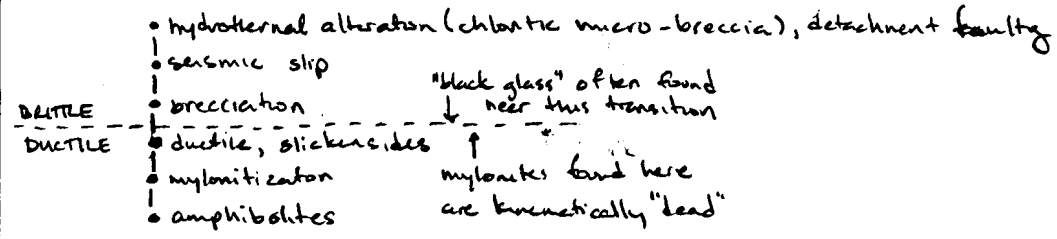 • hydrothermal alteration (chloritic micro-breccia), detachment faulting
• seismic slip
"black glass" often found
near this transition
BRITTLE
• brecciation
DUCTILE
• ductile, slickensides
• mylonitization
mylonites found here
are kinematically "dead"
• amphibolites